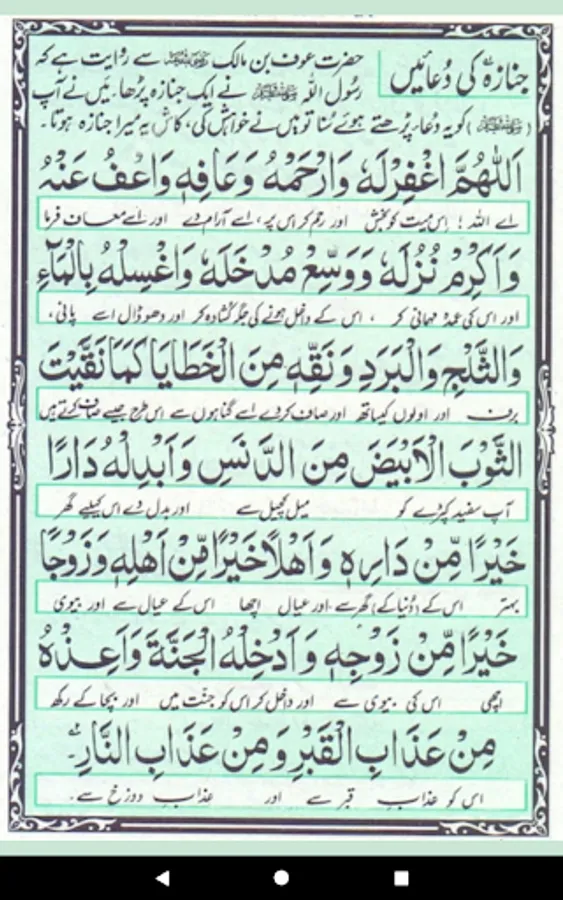 جنازہ کی دُعائیں
حضرت عوف بن مالک رضی اللہ عنہ سے روایت ہے کہ
رسُول اللہ ﷺ نے ایک جنازہ پڑھا۔ میں نے آپ
(ﷺ) کو یہ دُعا پڑھتے ہوئے سُنا تو میں نے خواہش کی، کاش یہ میرا جنازہ ہوتا۔
اَللّٰهُمَّ اغْفِرْلَهٗ وَارْحَمْهُ وَعَافِهٖ وَاعْفُ عَنْهُ
اے اللہ ! اِس میت کو بخش اور رحم کر اس پر، اسے آرام دے اور اسے معاف فرما
وَاَكْرِمْ نُزُلَهٗ وَوَسِّعْ مُدْخَلَهٗ وَاغْسِلْهُ بِالْمَآءِ
اور اس کی عمدہ مہمانی کر ، اس کے داخل ہونے کی جگہ کشادہ کر اور دھو ڈال اسے پانی،
وَالثَّلْجِ وَالْبَرَدِ وَنَقِّهٖ مِنَ الْخَطَايَا كَمَا نَقَّيْتَ
برف اور اولوں کیساتھ اور صاف کر دے اسے گناہوں سے اس طرح جیسے صاف کرتے ہیں
الثَّوْبَ الْاَبْيَضَ مِنَ الدَّنَسِ وَاَبْدِلْهُ دَارًا
آپ سفید کپڑے کو میل کچیل سے اور بدل دے اس کیلیے گھر
خَيْرًا مِّنْ دَارِهٖ وَاَهْلًا خَيْرًا مِّنْ اَهْلِهٖ وَزَوْجًا
بہتر اس کے (دُنیا کے) گھر سے اور عیال اچھا اس کے عیال سے اور بیوی
خَيْرًا مِّنْ زَوْجِهٖ وَاَدْخِلْهُ الْجَنَّةَ وَاَعِذْهُ
اچھی اس کی بیوی سے اور داخل کر اس کو جنّت میں اور بچا کے رکھ
مِنْ عَذَابِ الْقَبْرِ وَمِنْ عَذَابِ النَّارِ۔
اس کو عذابِ قبر سے اور عذابِ دوزخ سے۔